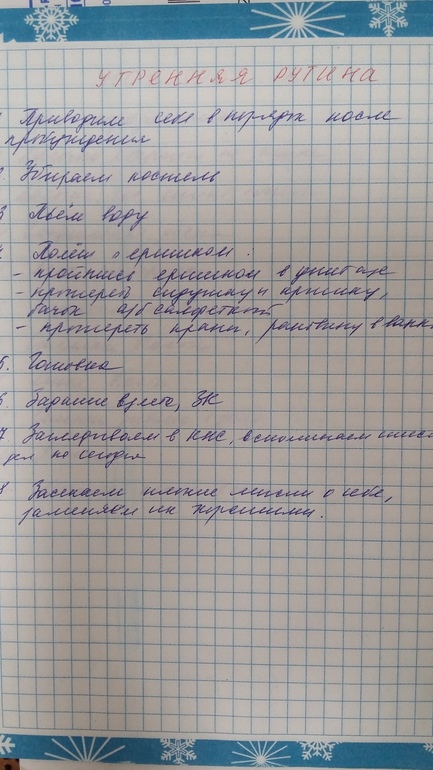 УТРЕННЯЯ РУТИНА
Приводим себя в порядок после
пробуждения
Убираем постель
3 Пьём воду
ёршиком:
- пройтись ёршиком в унитазе
- протереть сидушку и крышку,
бачок салфеткой
- протереть краны, раковину в ванн
5. Готовка
6. ЗК
7 Заглядываем в КПС, вспоминаем список
дел на сегодня
8 Засекаем плохие мысли о себе,
заменяем их хорошими.